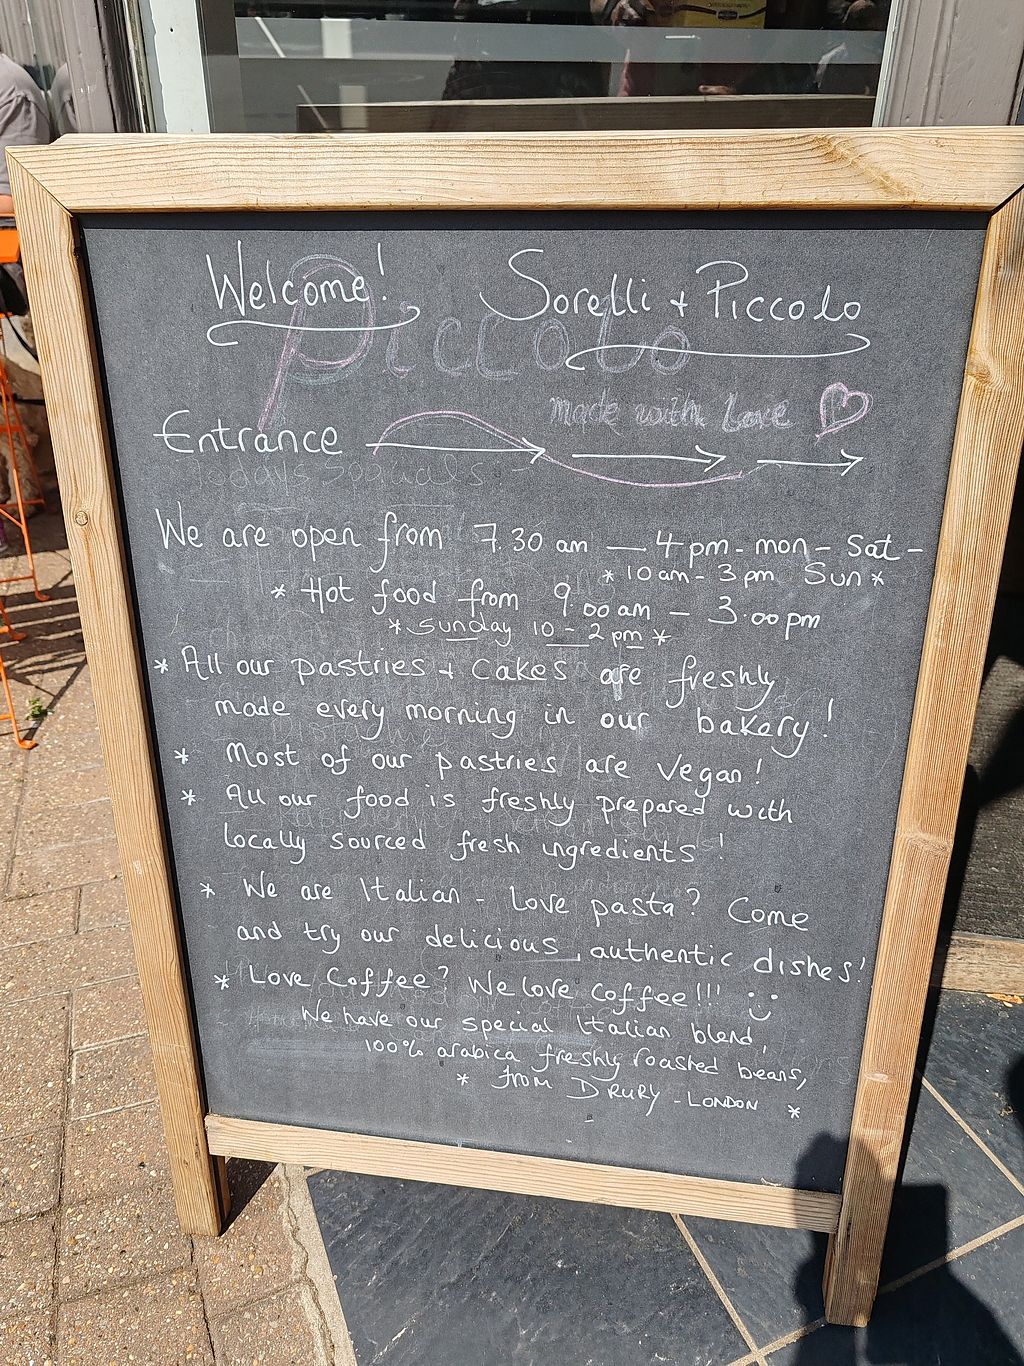 Welcome! Sorelli + Piccolo
Piccolo
made with Love
Entrance
Todays Specials -
We are open from 7.30 am — 4 pm - mon - Sat -
* 10 am - 3 pm Sun *
* Hot food from 9.00 am - 3.00 pm
* Sunday 10 - 2 pm *
* All our pastries + Cakes are freshly
made every morning in our bakery!
* Most of our pastries are vegan!
* All our food is freshly prepared with
locally sourced fresh ingredients!
* We are Italian - Love pasta? Come
and try our delicious, authentic dishes!
* Love Coffee? We love coffee!!!
We have our special Italian blend,
100% arabica freshly roasted beans,
* from DRURY - LONDON *